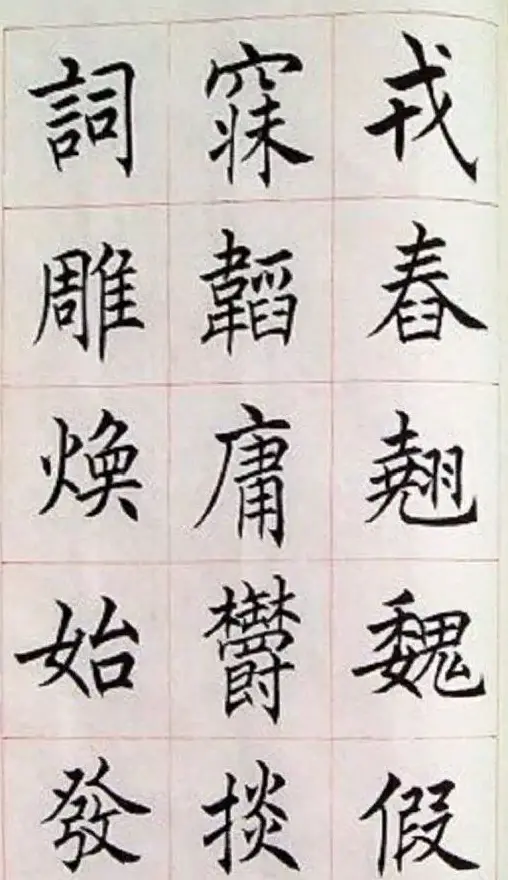 戎舂翹魏假
寐韜庸鬱掞
詞雕煥始發